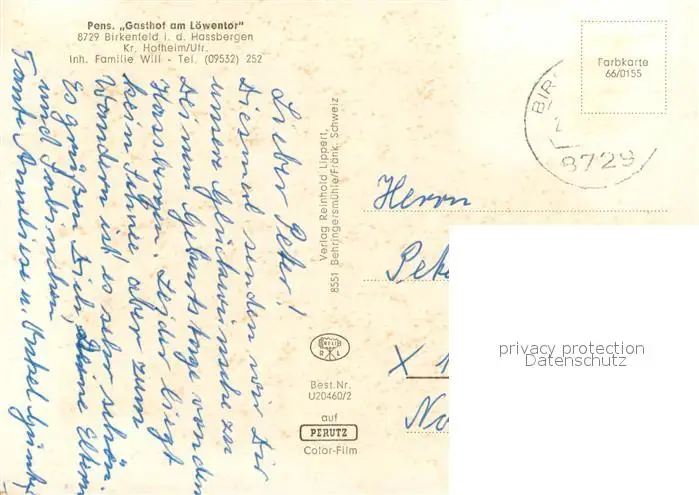 Pens. „Gasthof am Löwentor"
8729 Birkenfeld i. d. Hassbergen
Kr. Hofheim/Ufr.
Inh. Familie Will - Tel. (09532) 252
Lieber Peter!
Diesmal senden wir Dir
unsere Glückwünsche zu
Deinem Geburtstage von den
Hassbergen. Leider liegt
kein Schnee aber zum
Wandern ist es sehr schön.
Es grüßen Dich, Deine Eltern
und
Tante Anneliese u. Onkel
Verlag Reinhold Lippert,
8551 Behringersmühle/Fränk. Schweiz
RELI
R L
Best.Nr.
U20460/2
auf
PERUTZ
Color-Film
Farbkarte
66/0155
BIR
2
8729
Herrn
Pete
X 1
No
privacy protection
Datenschutz